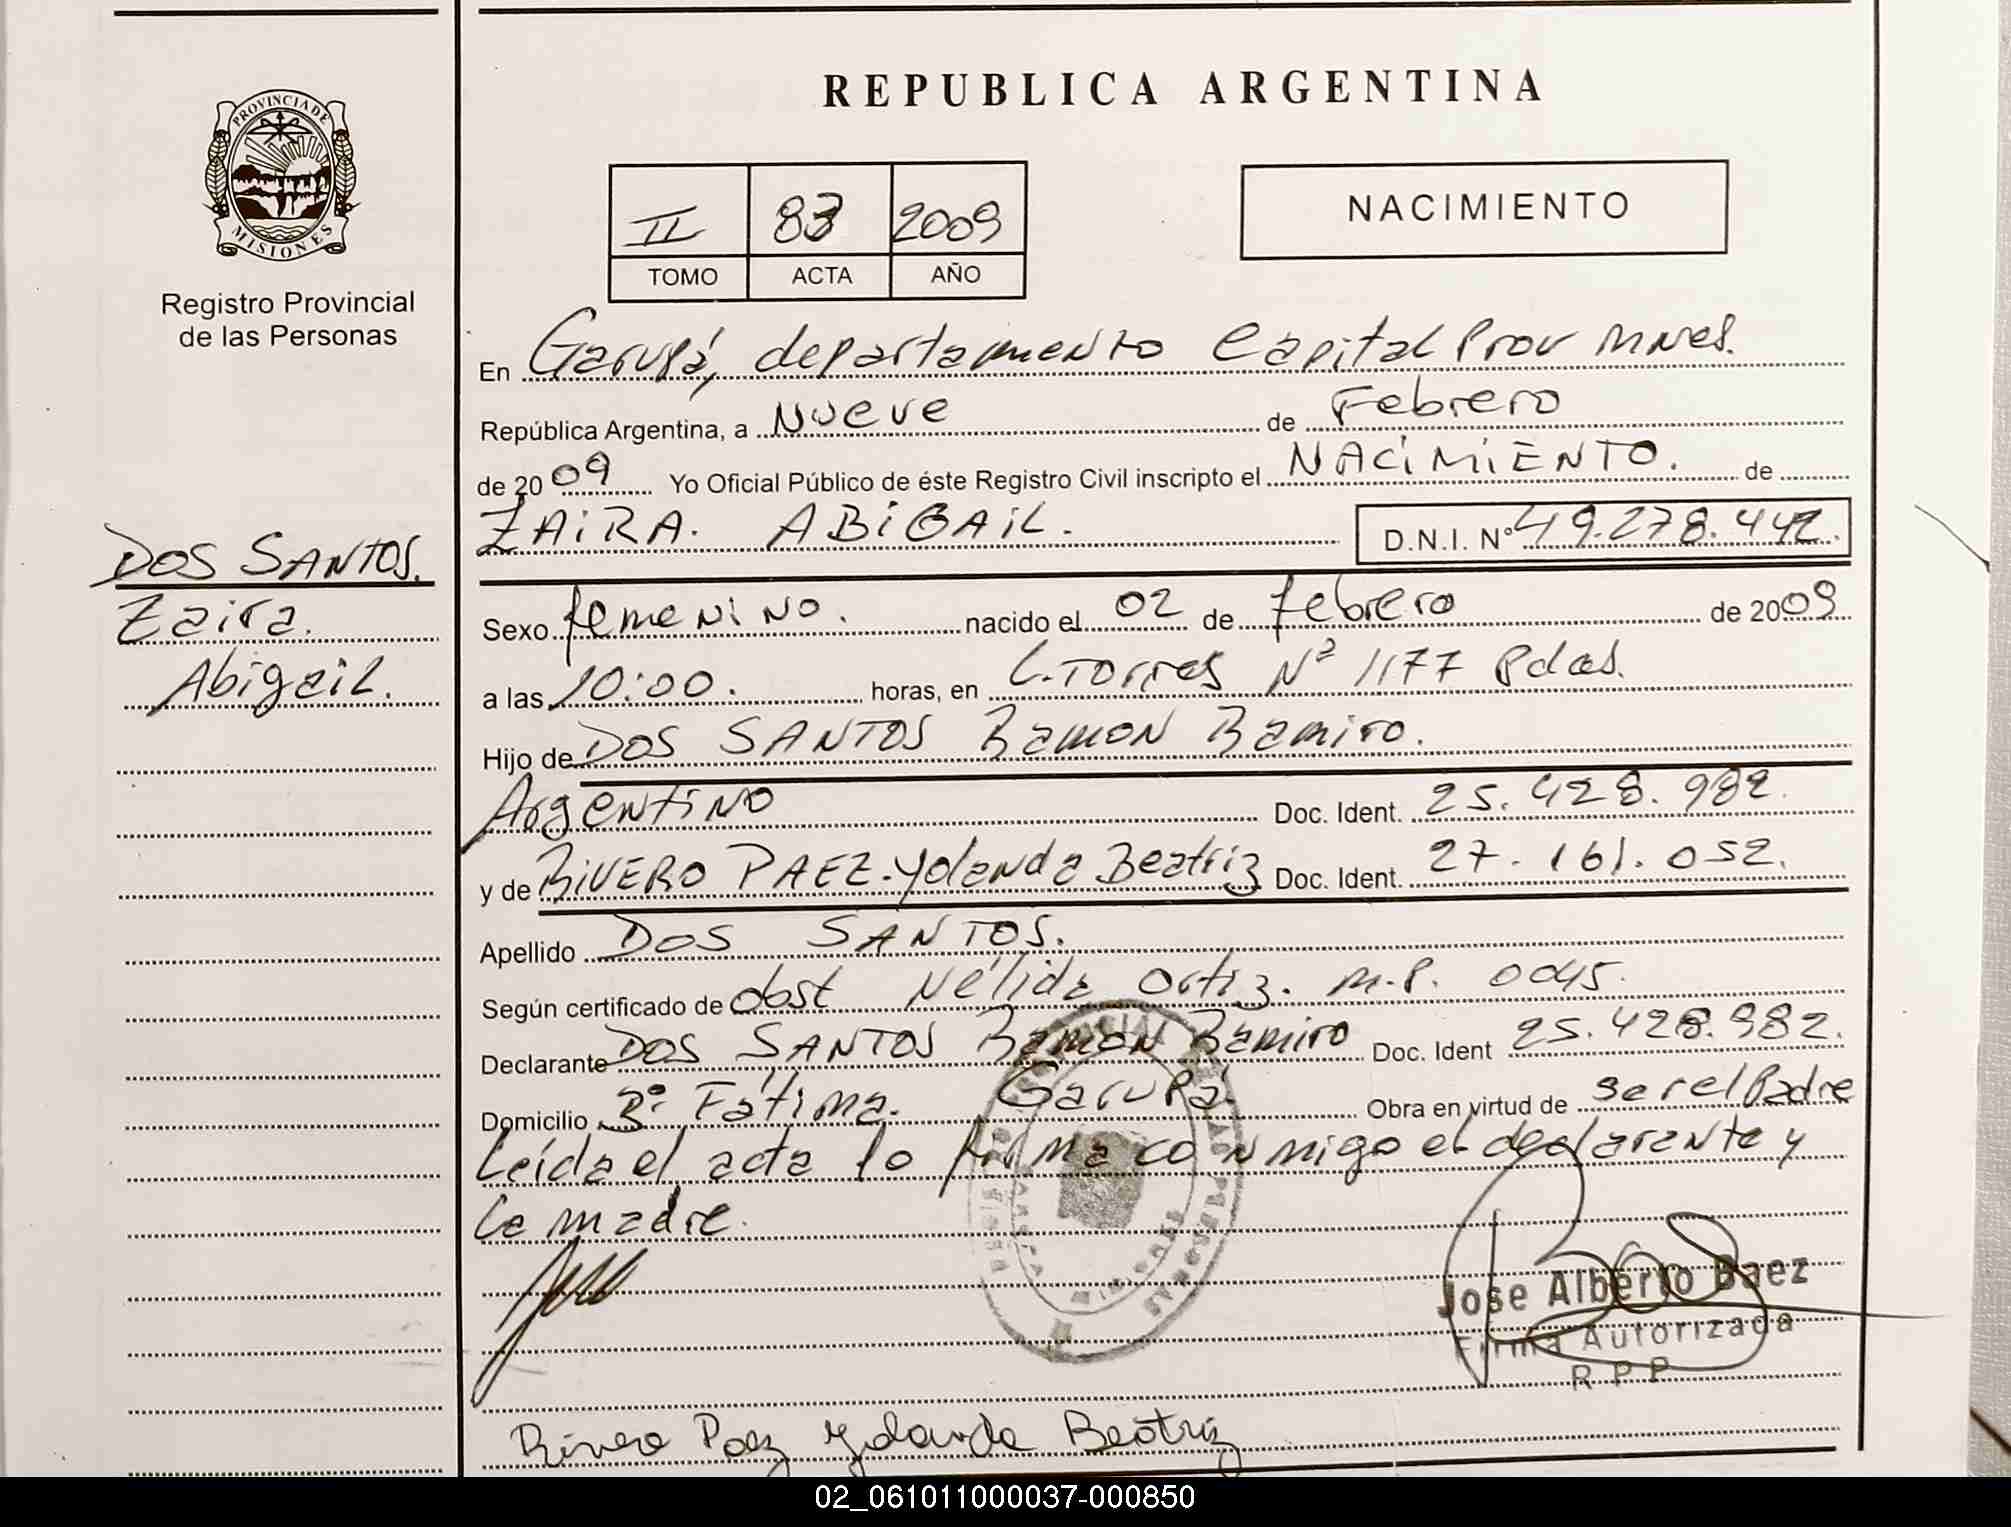 REPUBLICA ARGENTINA
PROVINCIA DE
MISIONES
Registro Provincial
de las Personas
II 83 2009
TOMO ACTA AÑO
NACIMIENTO
En Garupá, departamento Capital Prov Mnes.
República Argentina, a Nueve de Febrero
de 2009 Yo Oficial Público de éste Registro Civil inscripto el NACIMIENTO. de
ZAIRA. ABIGAIL. D.N.I. Nº 49.278.442.
DOS SANTOS.
Zaira.
Abigail.
Sexo femenino. nacido el 02 de febrero de 2009
a las 10:00. horas, en L. Torres Nº 1177 Pdas.
Hijo de DOS SANTOS Ramon Ramiro.
Argentino Doc. Ident. 25.428.982.
y de RIVERO PAEZ. Yolanda Beatriz Doc. Ident. 27.161.052.
Apellido DOS SANTOS.
Según certificado de obst Nélida Ortiz. M.P. 0045.
Declarante DOS SANTOS Ramon Ramiro Doc. Ident 25.428.982.
Domicilio Bº. Fátima. Garupá. Obra en virtud de ser el Padre
Leída el acta lo firma conmigo el declarante y
la madre.
Jose Alberto Baez
Firma Autorizada
R P P
Rivero Paez Yolanda Beatriz
02_061011000037-000850